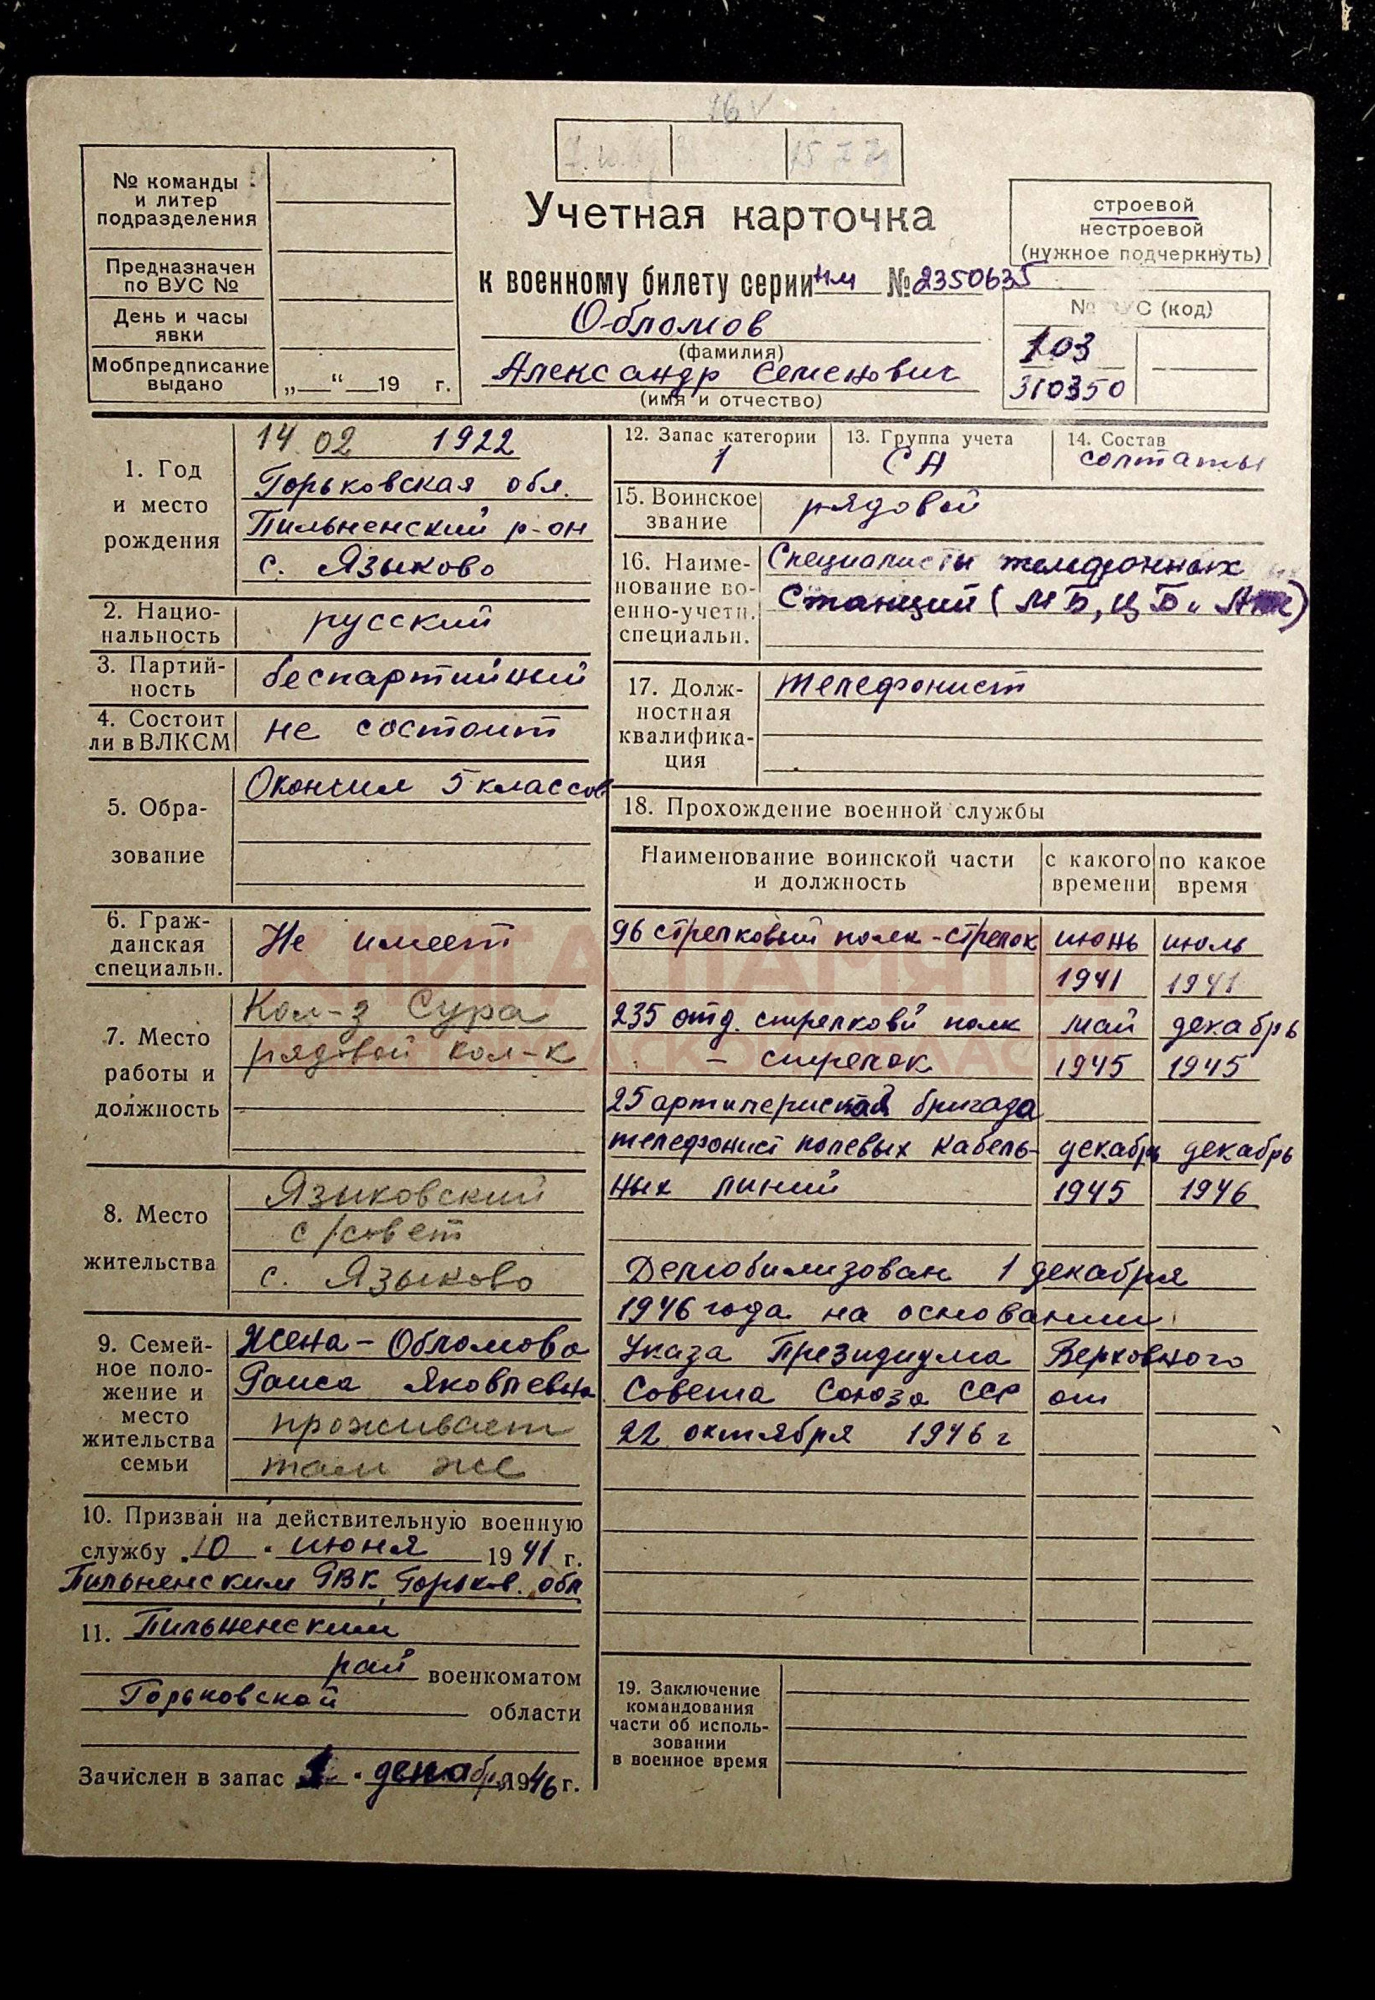 № команды
и литер
подразделения
Предназначен
по ВУС №
День и часы
явки
Мобпредписание
выдано
„ “ 19 г.
Учетная карточка
к военному билету серии нм № 2350635
Обломов
(фамилия)
Александр Семенович
(имя и отчество)
строевой
нестроевой
(нужное подчеркнуть)
№ ВУС (код)
103
310350
1. Год
и место
рождения
14 02 1922
Горьковская обл.
Пильненский р-он
с. Языково
2. Нацио-
нальность
русский
3. Партий-
ность
беспартийный
4. Состоит
ли в ВЛКСМ
не состоит
5. Обра-
зование
Окончил 5 классов
6. Граж-
данская
специальн.
Не имеет
7. Место
работы и
должность
Кол-з Сура
рядовой кол-к
8. Место
жительства
Языковский
с/совет
с. Языково
9. Семей-
ное поло-
жение и
место
жительства
семьи
Жена - Обломова
Раиса Яковлевна
проживает
там же
10. Призван на действительную военную
службу 10 июня 1941 г.
Пильненским РВК, Горьков. обл
11. Пильненским
рай военкоматом
Горьковской области
Зачислен в запас 1 декабря 1946 г.
12. Запас категории
1
13. Группа учета
СА
14. Состав
солтаты
15. Воинское
звание
рядовой
16. Наиме-
нование во-
енно-учетн.
специальн.
Специалисты телефонных
Станций (МБ, ЦБ и
17. Долж-
ностная
квалифика-
ция
телефонист
18. Прохождение военной службы
Наименование воинской части
и должность
с какого
времени
по какое
время
96 стрелковый полк - стрелок июнь июль
1941 1941
235 отд. стрелковй полк май декабрь
- стрелок 1945 1945
25 артилериская бригада
телефонист полевых кабель- декабрь декабрь
ных линий 1945 1946
Демобилизован 1 декабря
1946 года на основании
Указа Президиума Верховного
Совета Союза ССР от
22 октября 1946 г
19. Заключение
командования
части об исполь-
зовании
в военное время
КНИГА ПАМЯТИ
НИЖЕГОРОДСКОЙ ОБЛАСТИ